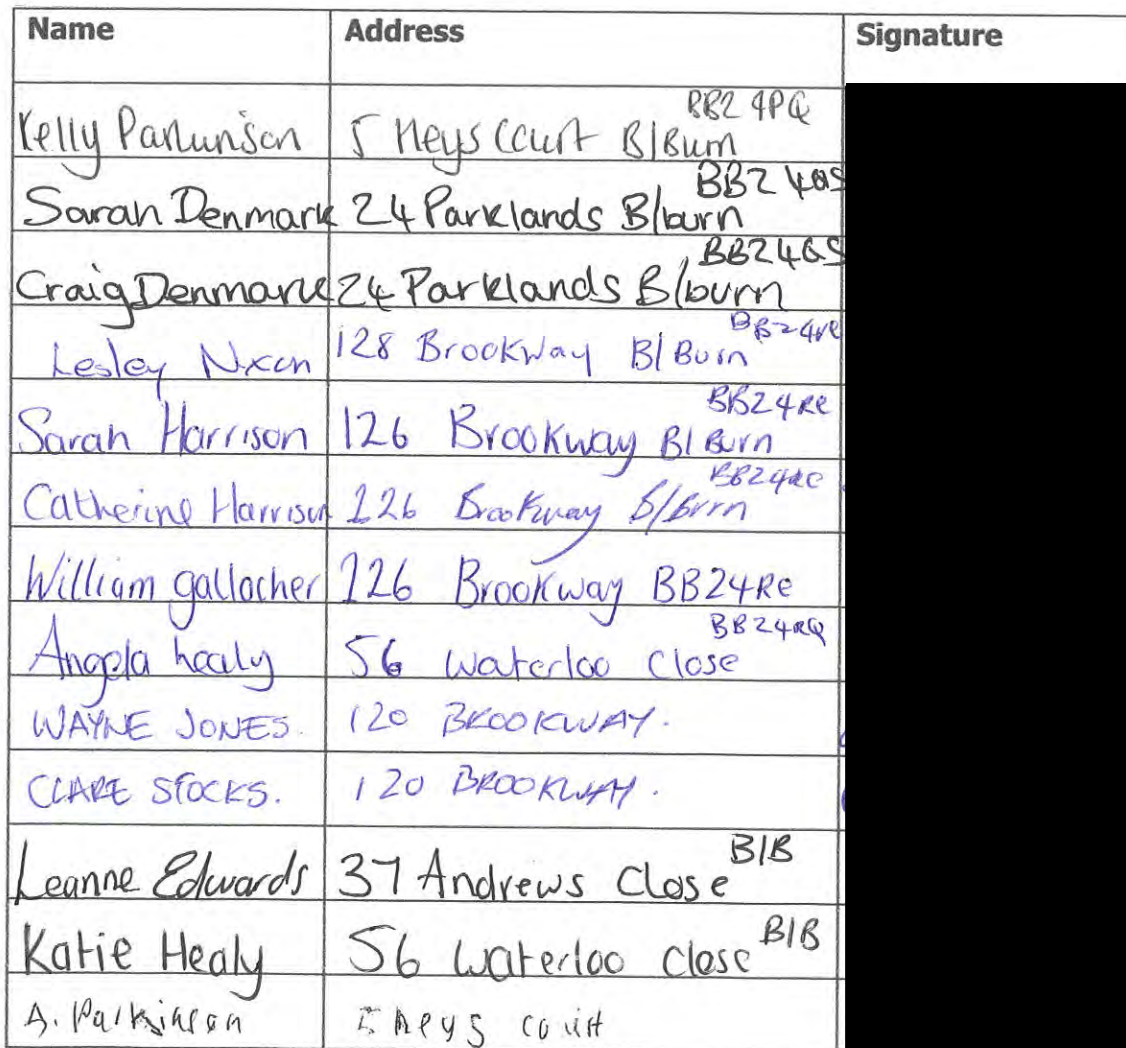 Name Address Signature
Kelly Parkinson 5 Heys Court B/Burn BB2 4PQ
Sarah Denmark 24 Parklands B/burn BB2 4QS
Craig Denmark 24 Parklands B/burn BB2 4QS
Lesley Nixon 128 Brookway B/Burn BB2 4RE
Sarah Harrison 126 Brookway B/Burn BB24Re
Catherine Harrison 126 Brookway B/Burn BB24Re
William gallacher 126 Brookway BB24Re
Angela healy 56 Waterloo Close BB24RQ
WAYNE JONES. 120 BROOKWAY.
CLARE STOCKS. 120 BROOKWAY.
Leanne Edwards 37 Andrews Close B/B
Katie Healy 56 Waterloo close B/B
A. Parkinson 5 heys court